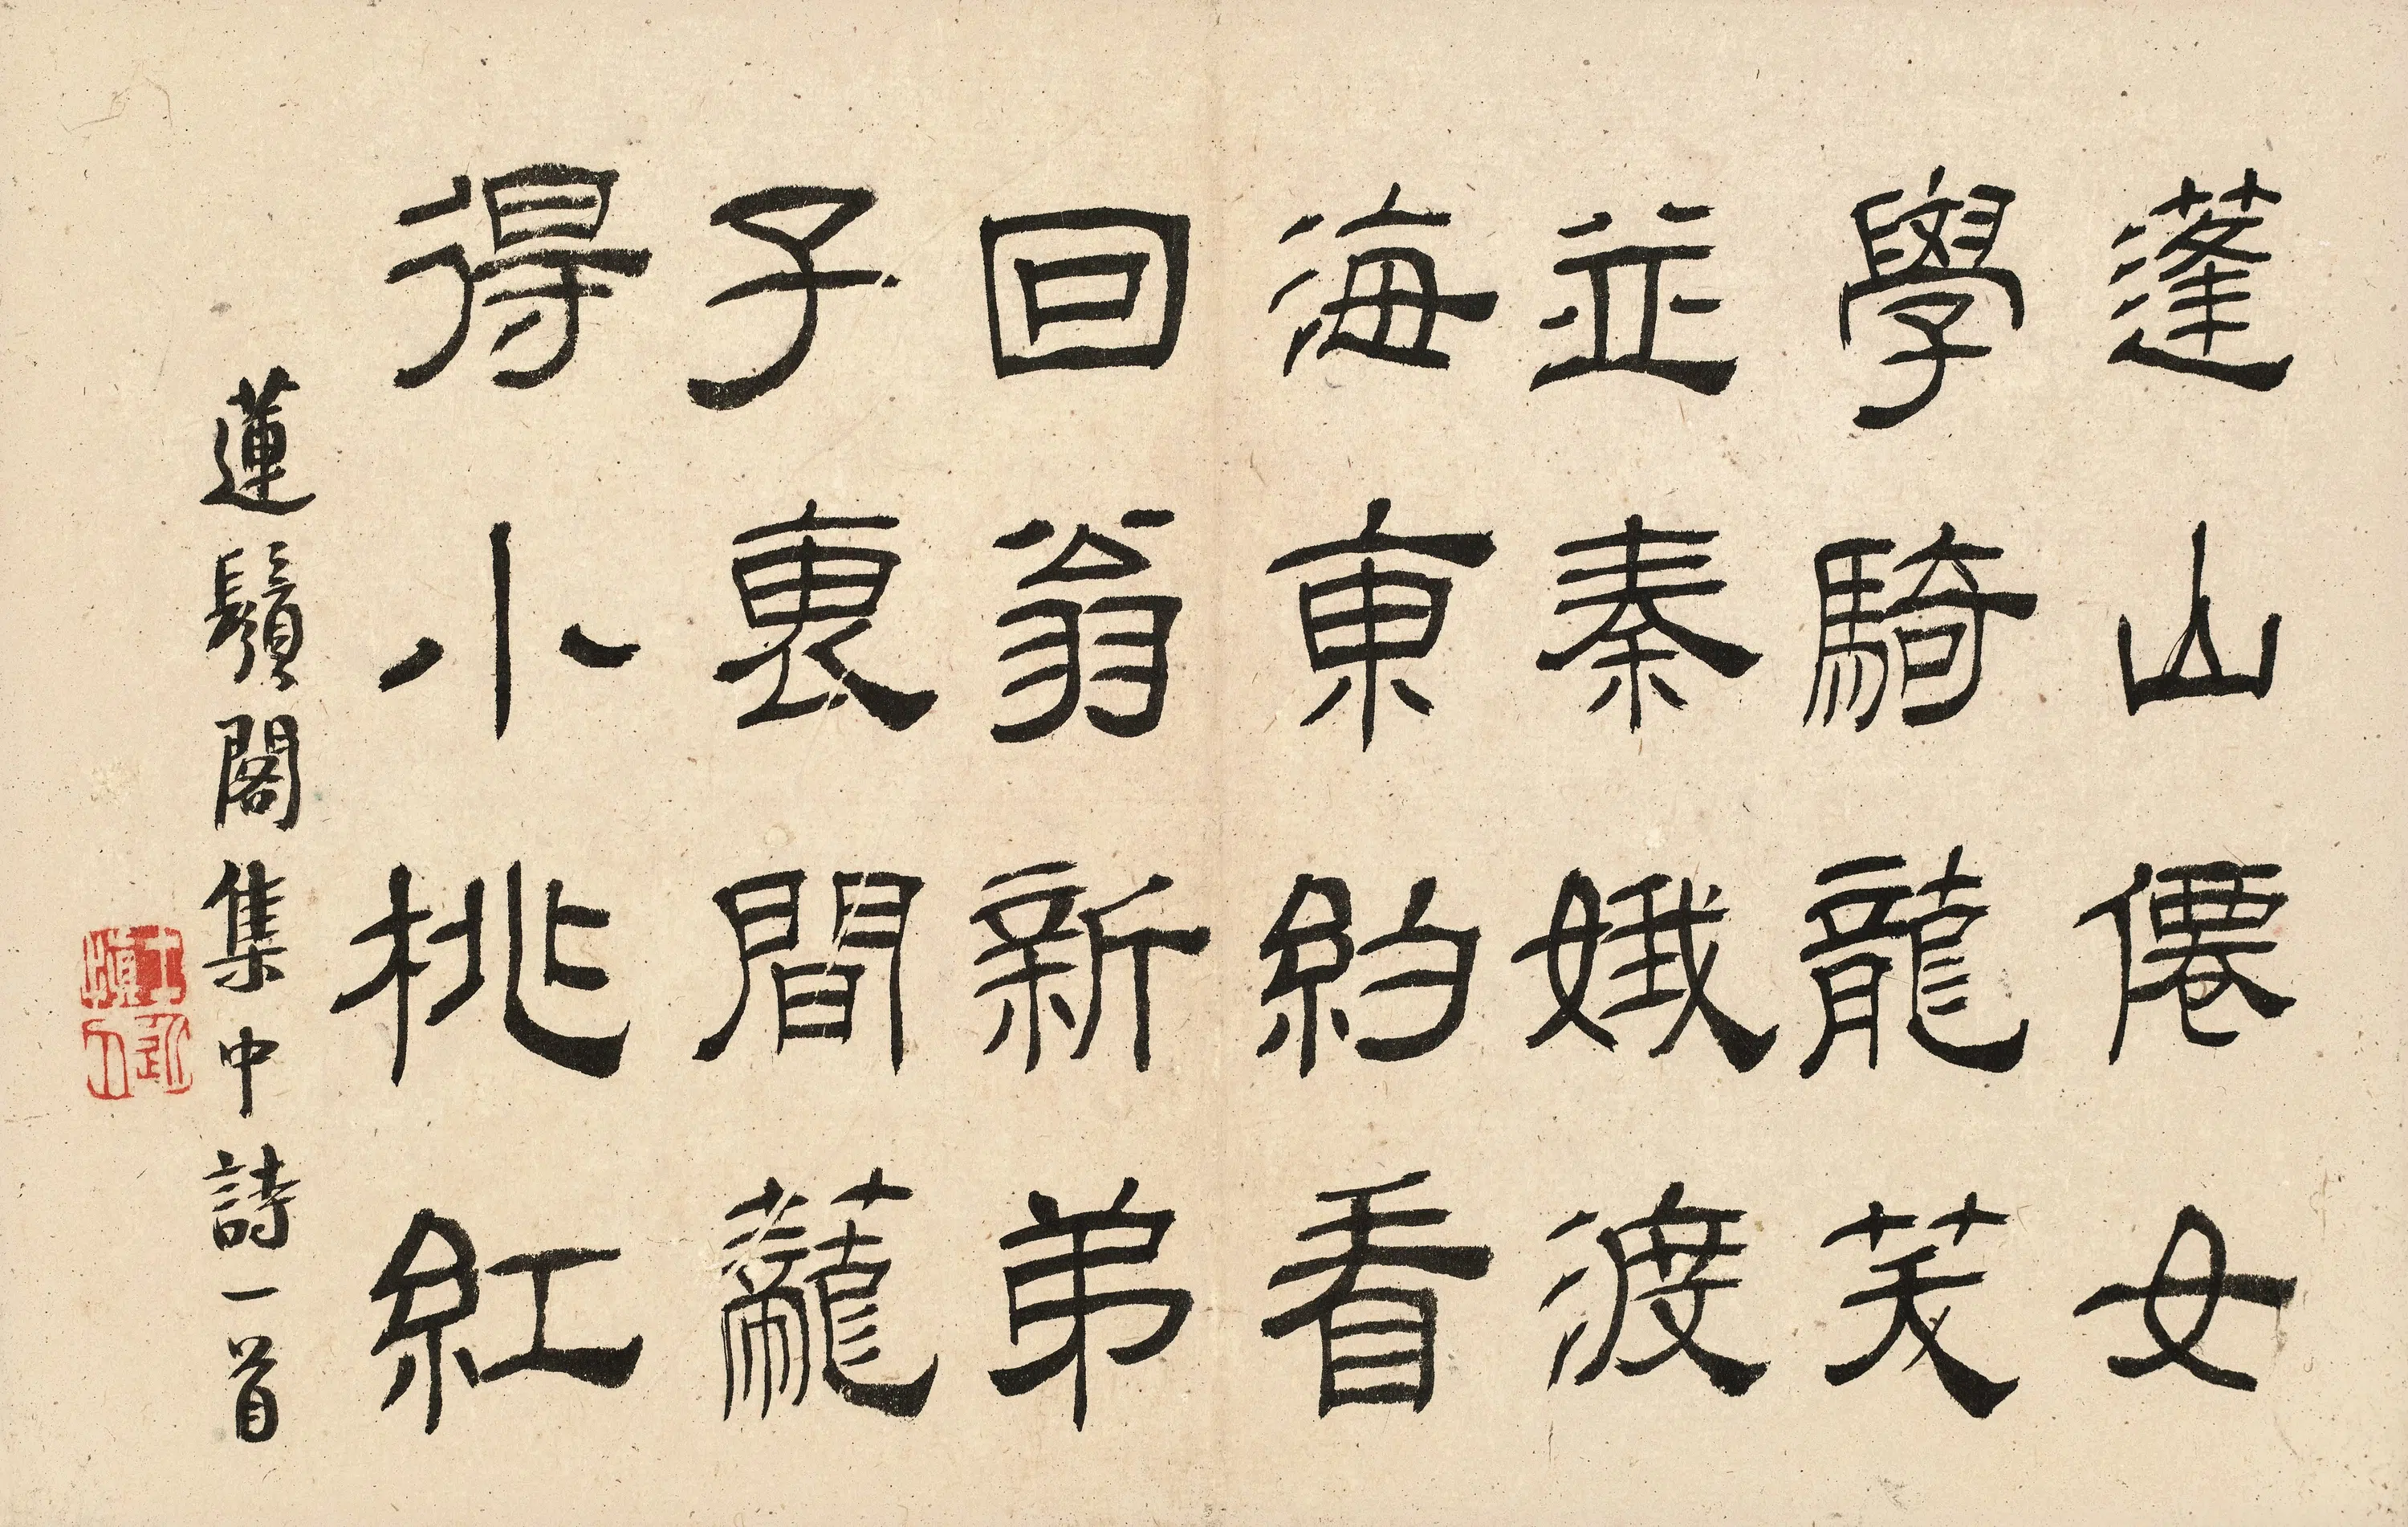 蓬山僊女
學騎龍芺
並秦娥渡
海東約看
回翁新弟
子褏間蘢
得小桃紅
蓮鬚閣集中詩一首